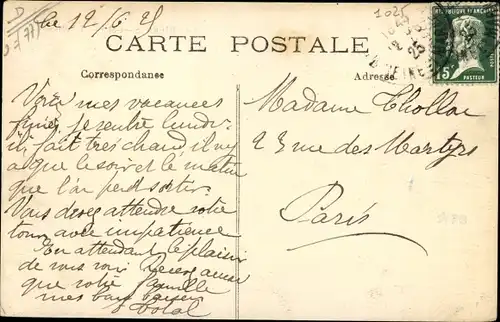 Le 12/6 25
1025
CARTE POSTALE
Correspondance
Adresse
RÉPUBLIQUE FRANÇAISE
15c
POSTES
PASTEUR
25
Voici mes vacances
finies, je rentre lundi.
il fait très chaud, il n'y
a que le soir et le matin
que l'on peut sortir.
Vous devez attendre votre
tour avec impatience
En attendant le plaisir
de vous voir recevez ainsi
que votre famille
mes bons baisers
Madame Chollar
23 rue des Martyrs
Paris